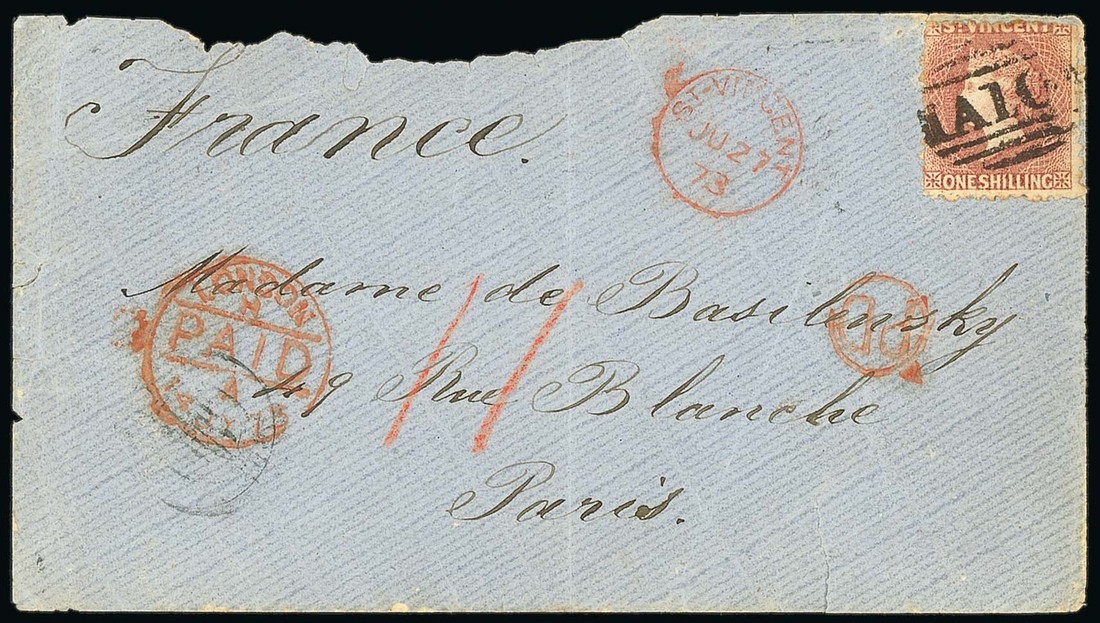 France.
ST. VINCENT
A10
ONE SHILLING
ST. VINCENT
JU 27
73
Madame de Basilewsky
49 Rue Blanche
Paris.
LONDON
PAID
PD